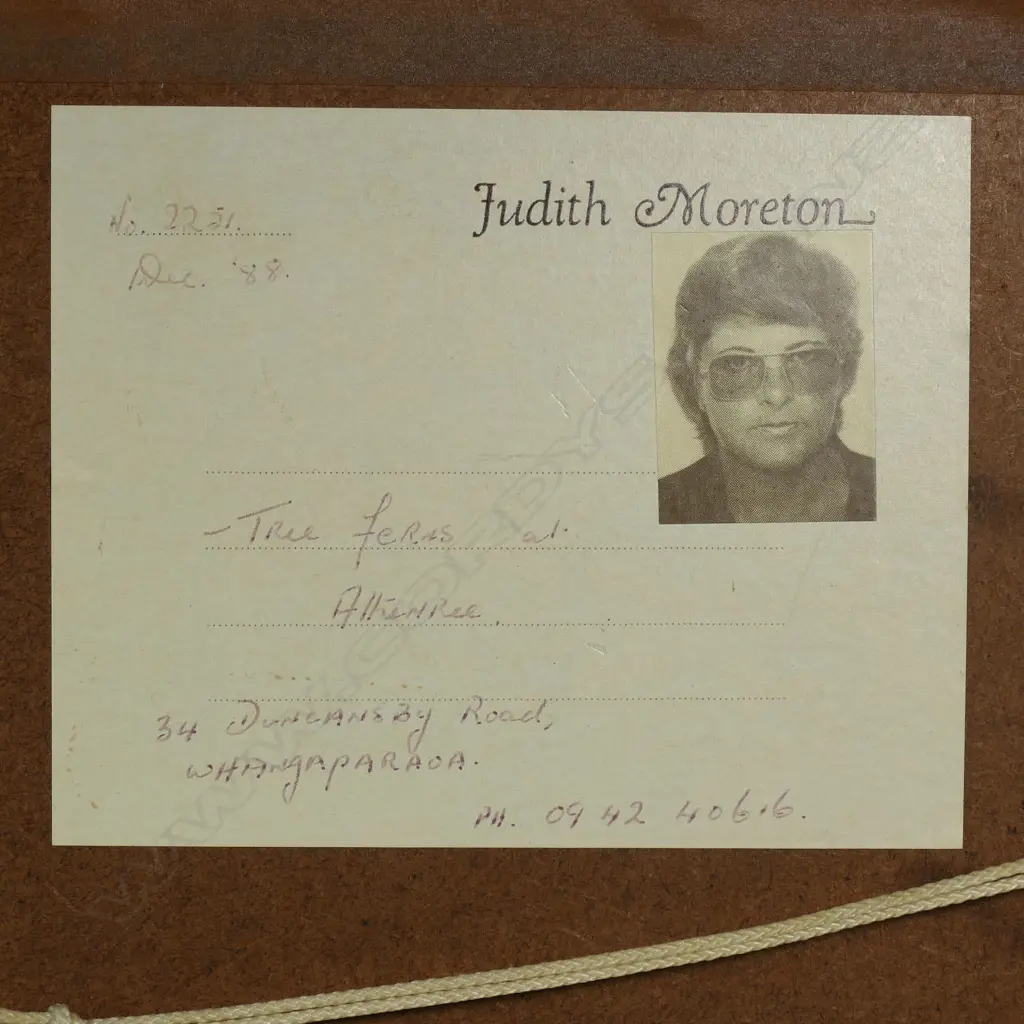 Judith Moreton
No. 2231.
Dec. '88.
- Tree Ferns at
Athenree.
34 Duncansby Road,
WHANGAPARAOA.
PH. 09 42 4066.